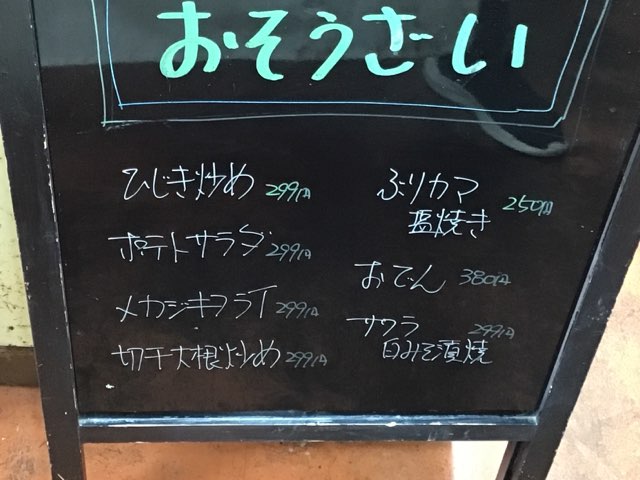 おそうざい
ひじき炒め 299円
ポテトサラダ 299円
メカジキフライ 299円
切干大根炒め 299円
ぶりカマ
塩焼き 250円
おでん 380円
サワラ 299円
白みそ漬焼